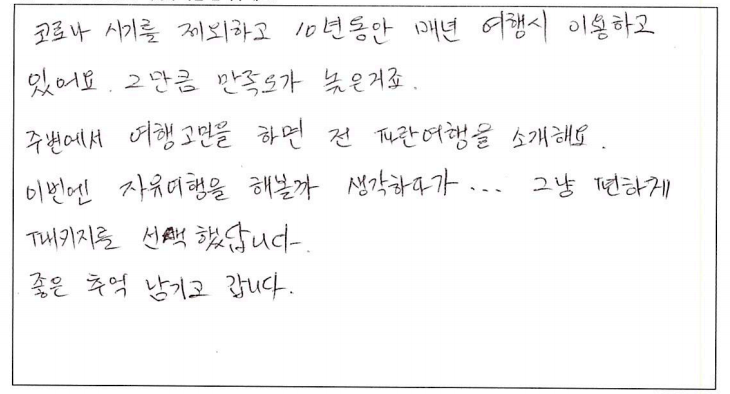 코로나 시기를 제외하고 10년동안 매년 여행시 이용하고
있어요. 그만큼 만족도가 높은거죠.
주변에서 여행고민을 하면 전 파란여행을 소개해요.
이번엔 자유여행을 해볼까 생각하다가... 그냥 편하게
패키지를 선택했답니다.
좋은 추억 남기고 갑니다.